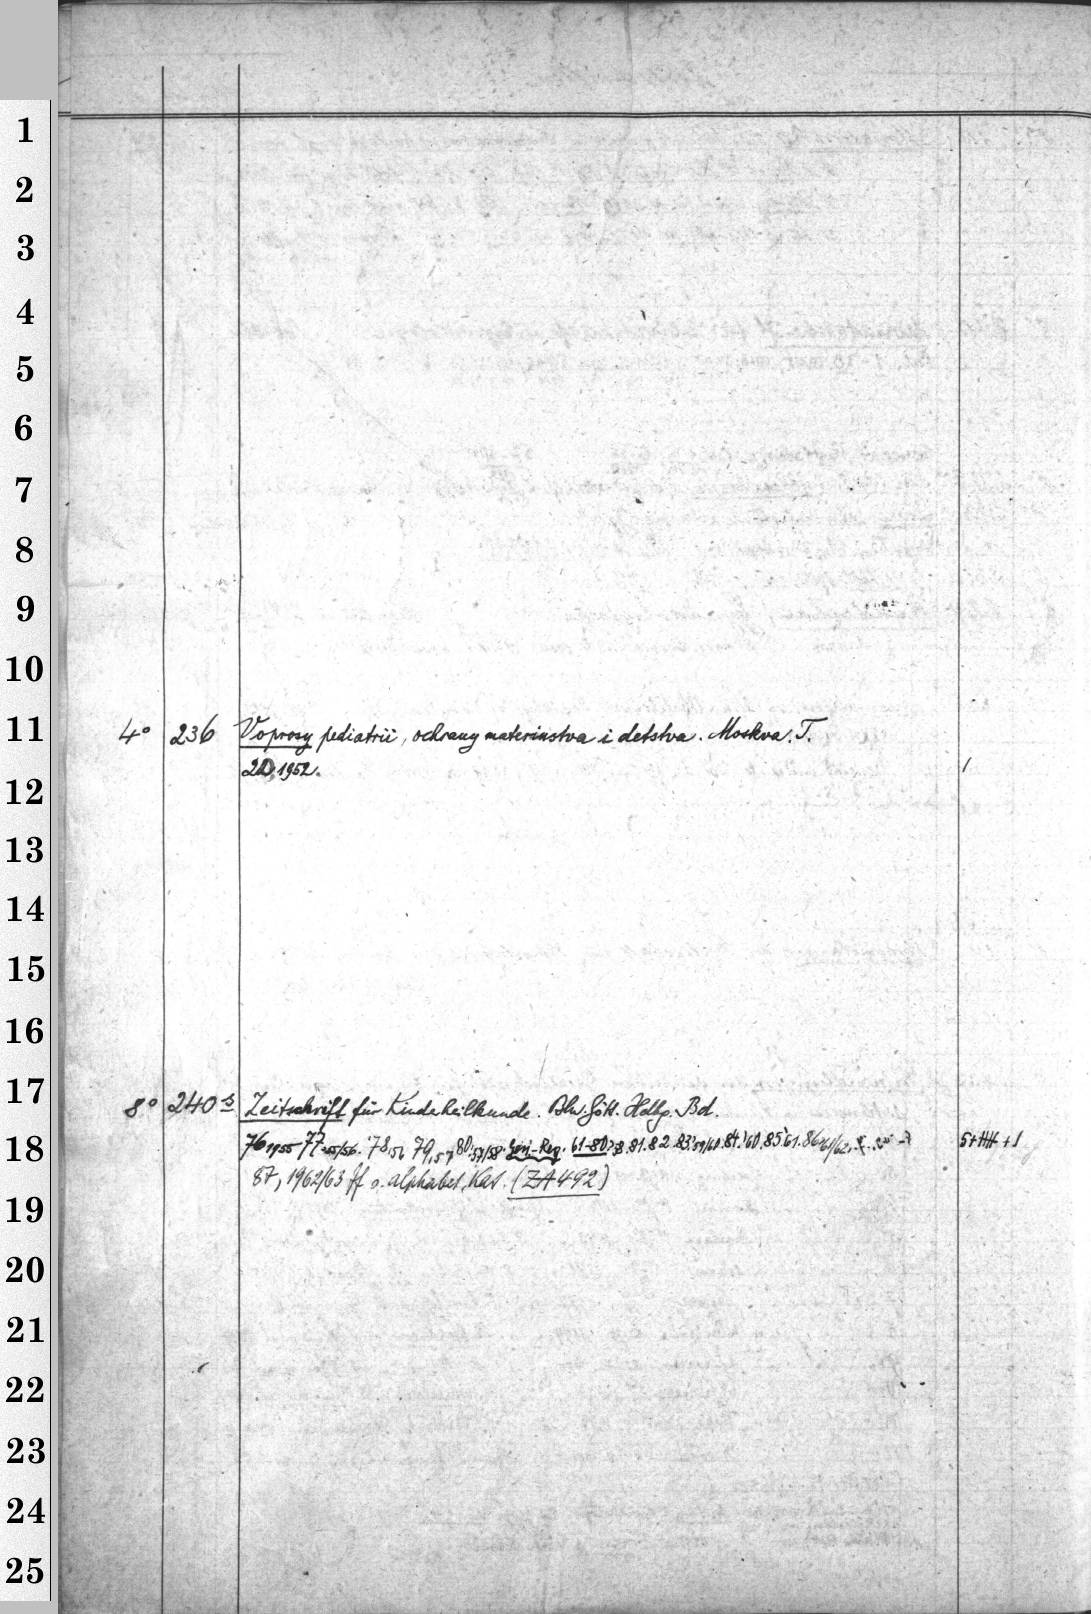 1
2
3
4
5
6
7
8
9
10
11
4° 236 Voprosy pediatrii, ochrany materinstva i detstva. Moskva. T.
20,1952. /
12
13
14
15
16
17
8° 240 s Zeitschrift für Kinderheilkunde. Bln. Gött. Hdbg. Bd.
18
76,1955 77,55/56. 78,56 79,57 80,57/58. Gen.-Reg. 61-80. 81. 82. 83,59/60. 84,60. 85,61. 86,61/62.
87, 1962/63 ff s. alphabet. Kat. (ZA 492)
19
20
21
22
23
24
25